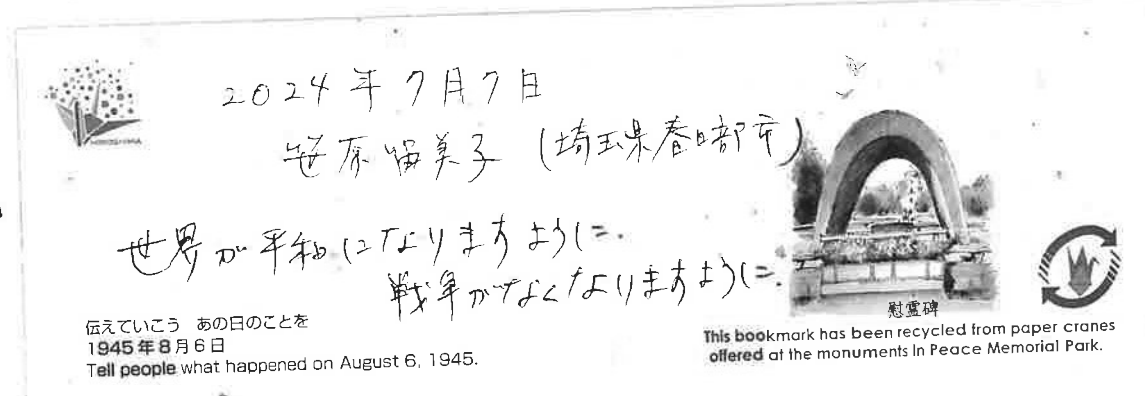 HIROSHIMA
2024年7月7日
笹原留美子(埼玉県春日部市)
世界が平和になりますように.
戦争がなくなりますように.
伝えていこう あの日のことを
1945年8月6日
Tell people what happened on August 6, 1945.
慰霊碑
This bookmark has been recycled from paper cranes
offered at the monuments in Peace Memorial Park.